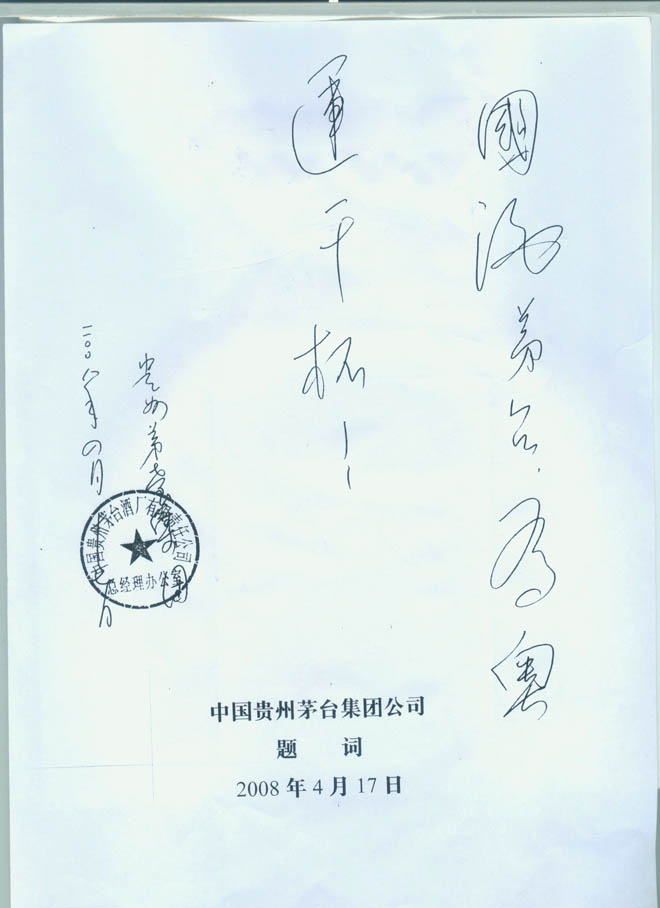 國酒茅台，为奥
運干杯！
贵州茅台
二00八年四月
中国贵州茅台酒厂有限责任公司
总经理办公室
中国贵州茅台集团公司
题 词
2008 年 4 月 17 日